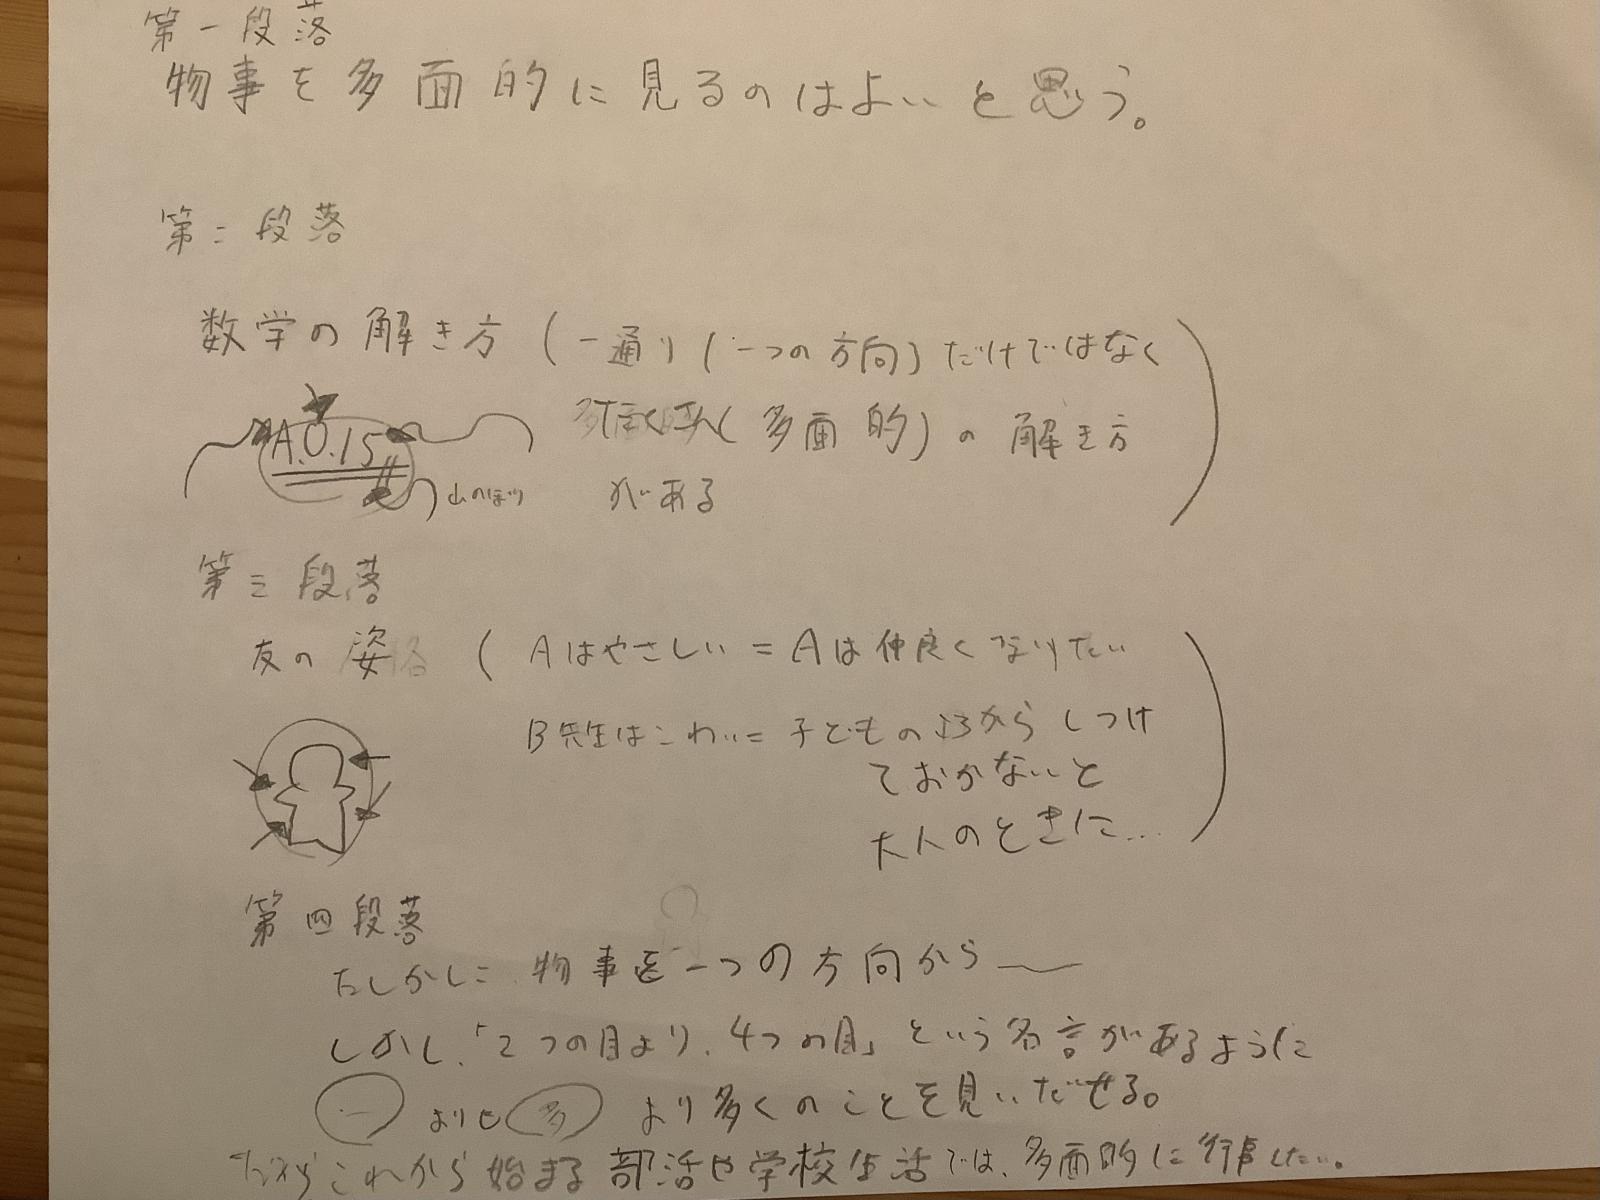 第一段落
物事を多面的に見るのはよいと思う。
第二段落
数学の解き方(一通り(一つの方向)だけではなく
(多面的)の解き方
がある
A.0.15
山のぼり
第三段落
友の姿(Aはやさしい=Aは仲良くなりたい
B先生はこわい=子どものころからしつけ
ておかないと
大人のときに...
第四段落
たしかに物事を一つの方向から
しかし、「2つの目より、4つの目」という名言があるように
一よりも多より多くのことを見いだせる。
だからこれから始まる部活や学校生活では、多面的に行動したい。